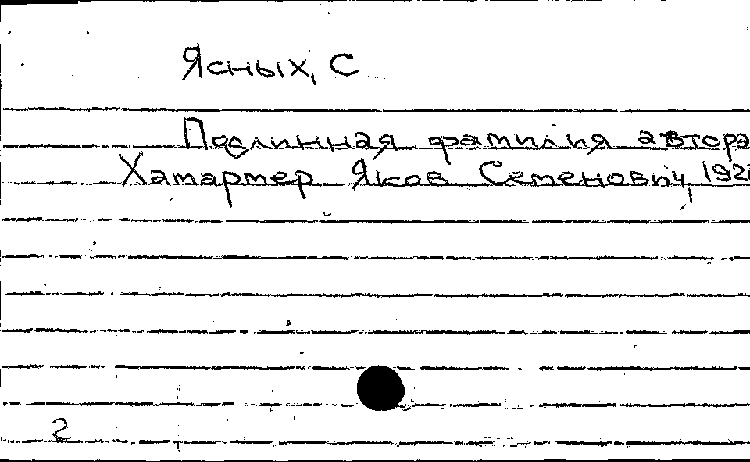 Ясных, С
Подлинная фамилия автора
Хатармер Яков Семенович, 192
2